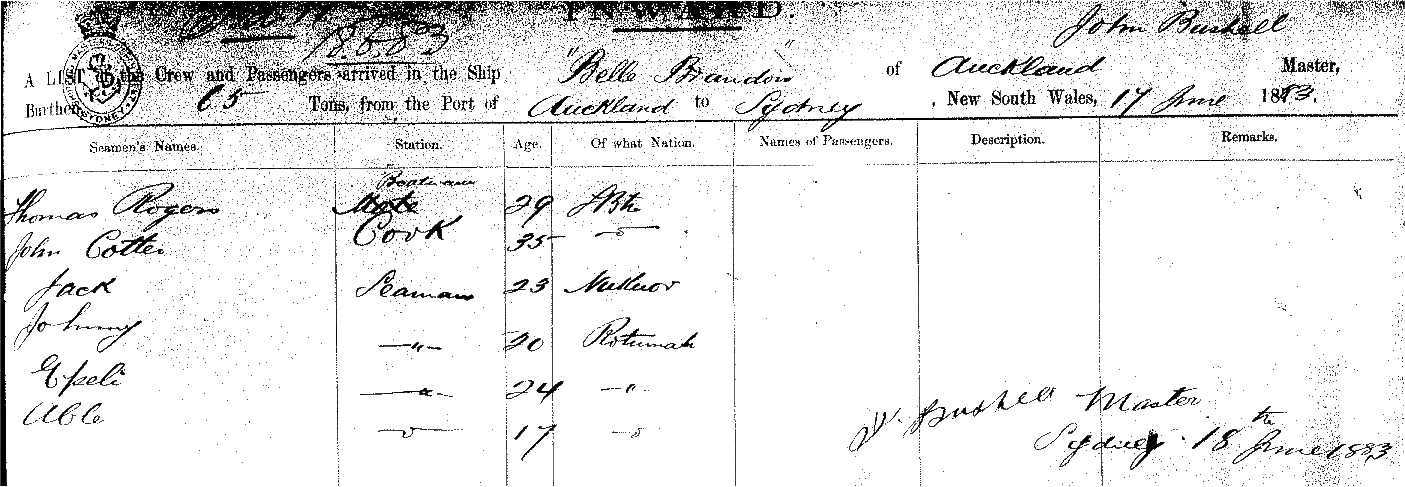 INWARD.
18683
John Bushell
A LIST of the Crew and Passengers arrived in the Ship "Belle Brandon" of Auckland Master,
Burthen 65 Tons, from the Port of Auckland to Sydney, New South Wales, 17 June 1883.
Seamen's Names. Station. Age. Of what Nation. Names of Passengers. Description. Remarks.
Thomas Rogers Mate 29
John Cotter Cook 35 "
Jack Seaman 23 Nukuor
Johnny " 20 Rotumah
Epeli " 24 "
Able " 17 "
J. Bushell Master
Sydney 18th June 1883